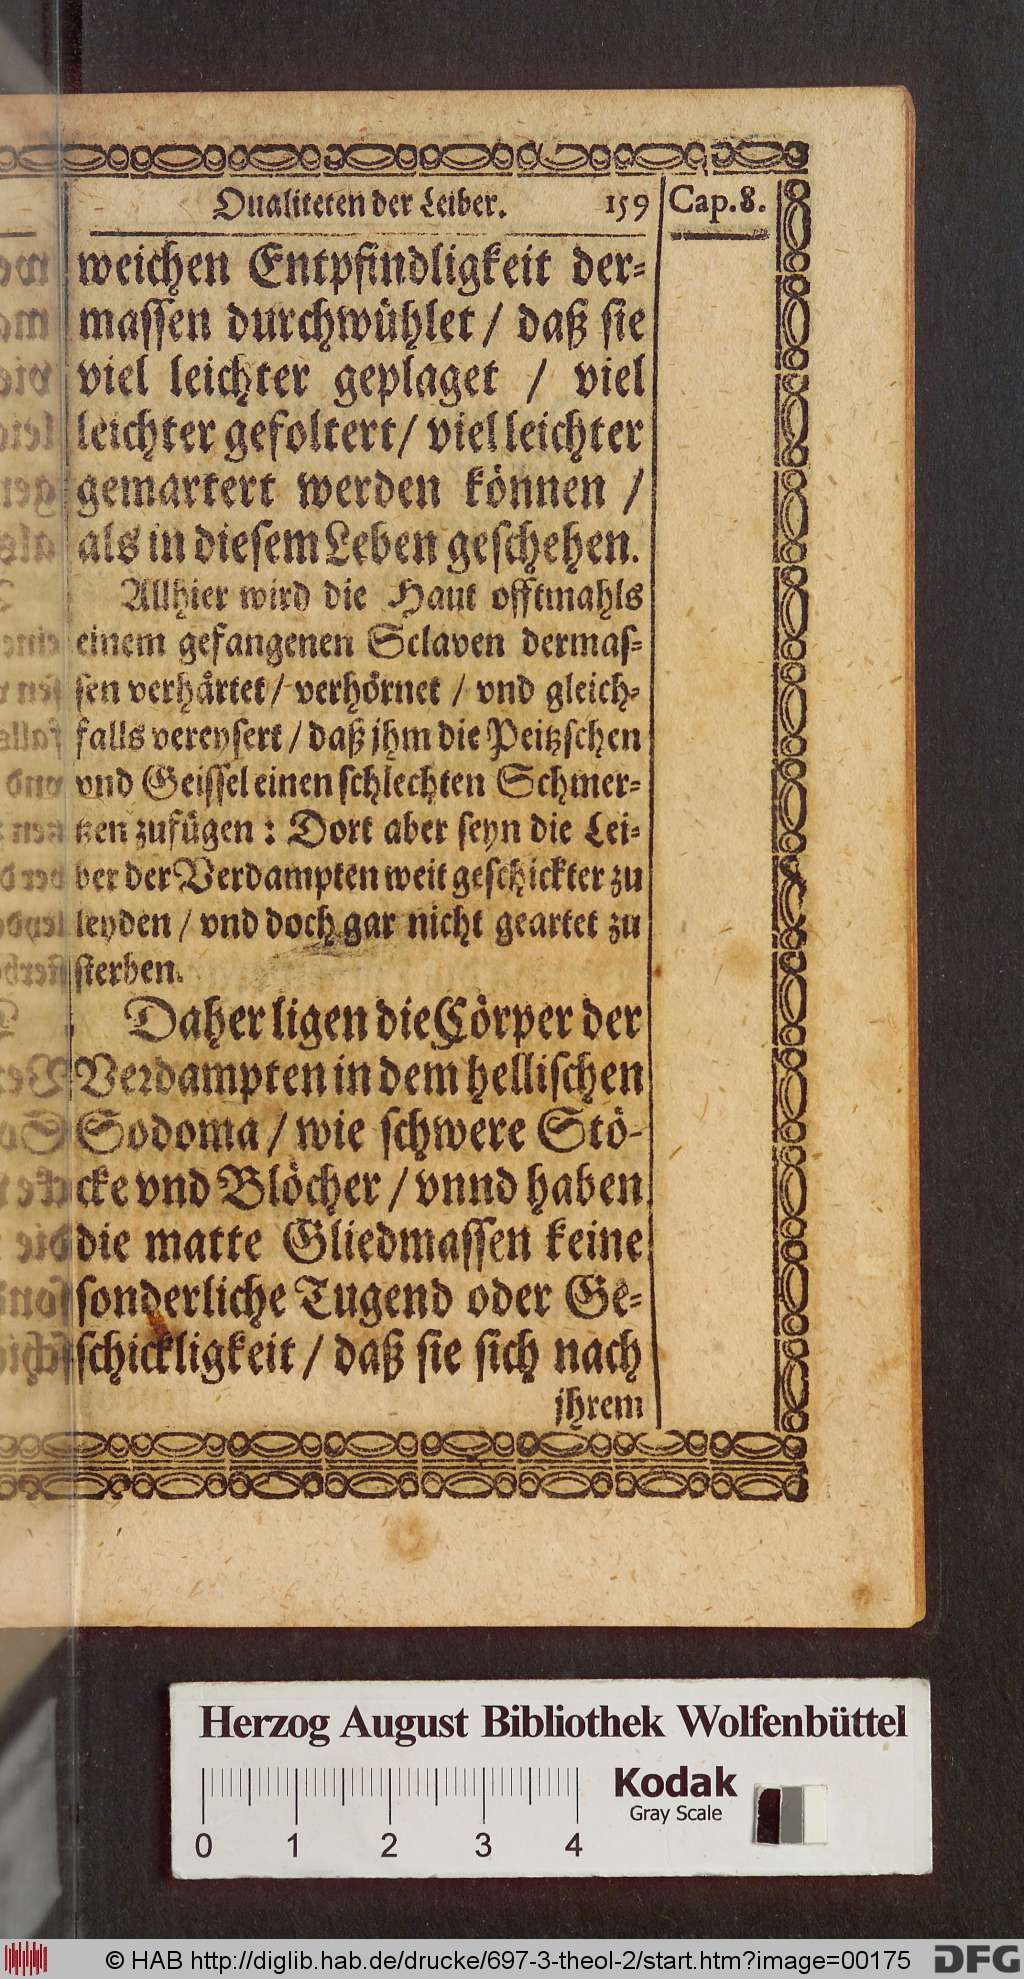 Qualiteten der Leiber. 159 Cap. 8.
weichen Entpfindligkeit der=
massen durchwühlet / daß sie
viel leichter geplaget / viel
leichter gefoltert / viel leichter
gemartert werden können /
als in diesem Leben geschehen.
Allhier wird die Haut offtmahls
einem gefangenen Sclaven dermas=
sen verhårtet / verhörnet / vnd gleich=
falls vereysert / daß jhm die Peitzschen
vnd Geissel einen schlechten Schmer=
tzen zufügen : Dort aber seyn die Lei=
ber der Verdampten weit geschickter zu
leyden / vnd doch gar nicht geartet zu
sterben.
Daher ligen die Cörper der
Verdampten in dem hellischen
Sodoma / wie schwere Stö-
cke vnd Blöcher / vnnd haben
die matte Gliedmassen keine
sonderliche Tugend oder Ge=
schickligkeit / daß sie sich nach
jhrem
Herzog August Bibliothek Wolfenbüttel
Kodak
Gray Scale
0 1 2 3 4
© HAB http://diglib.hab.de/drucke/697-3-theol-2/start.htm?image=00175 DFG